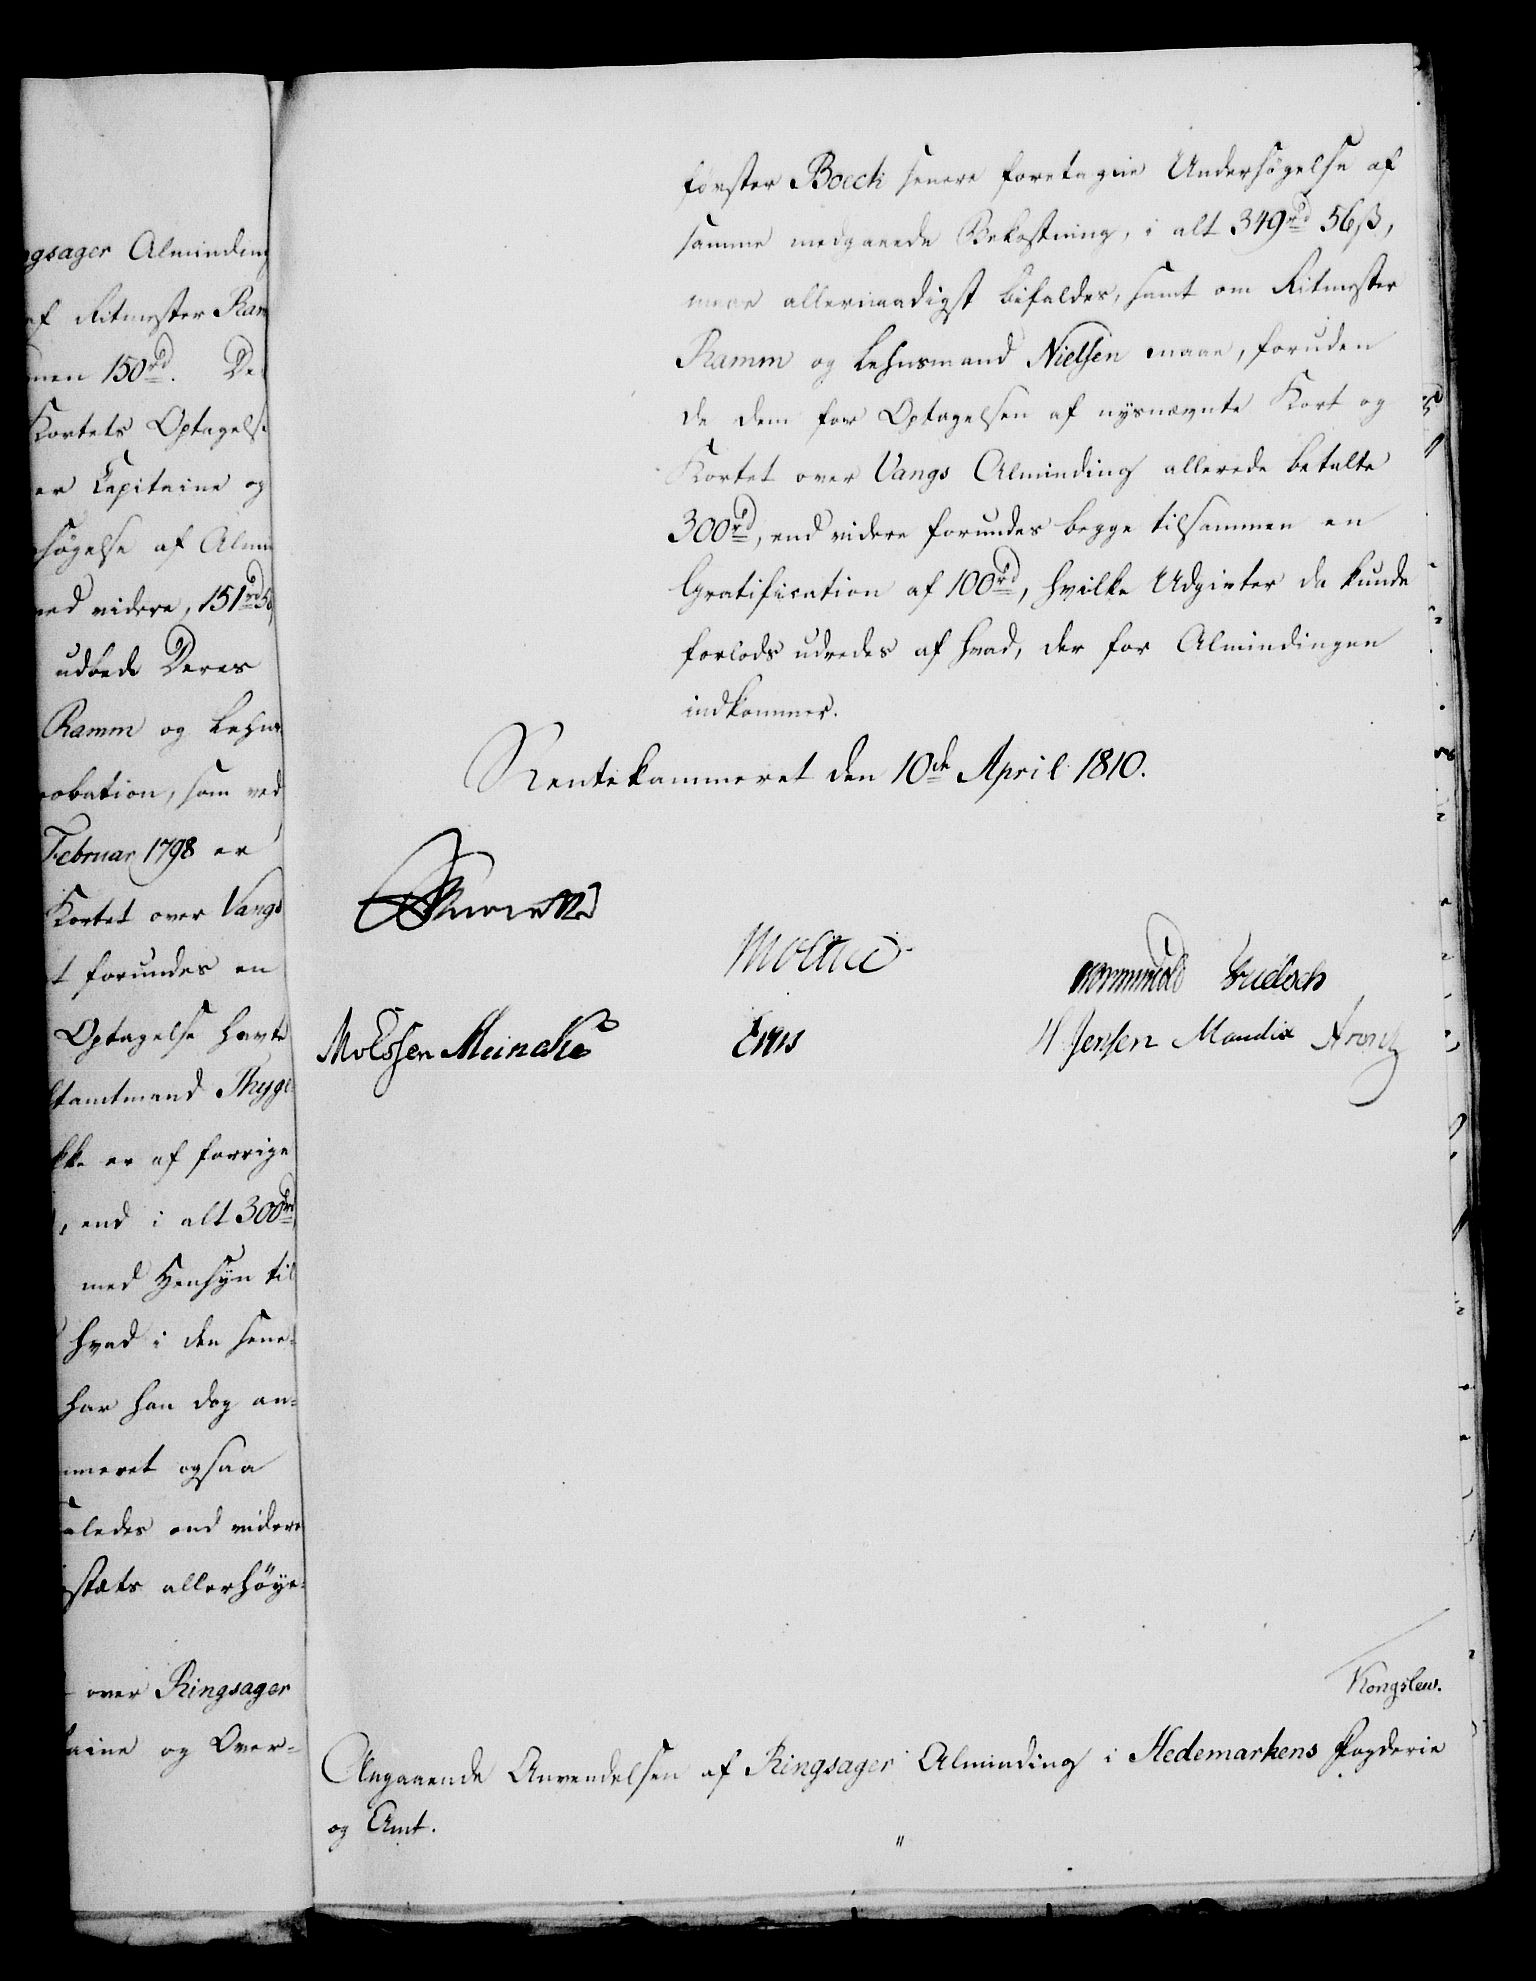 ngsager Alminding
af Ritmester Ram
men 150rd. De
Kortets Optagelse
er Capitaine og
søgelse af Almin
med videre, 151rd 50
udbede Deres
Ramm og Lehns
robation, som ved
Februar 1798 er
Kortet over Vangs
t forundes en
Optagelse havte
tamtmand Thyge-
kke er af forrige
, end i alt 300rd,
med Hensyn til
hvad i den sene-
har han dog an-
mmeret ogsaa
aaledes end videre
stæts allerhøye-
over Ringsager
taine og Over-
førster Boeck senere foretagne Undersøgelse af
samme medgaaede Bekostning, i alt 349rd 56ß,
maae allernaadigst bifaldes, samt om Ritmester
Ramm og Lehnsmand Nielsen maae, foruden
de dem for Optagelsen af nysnævnte Kort og
Kortet over Vangs Alminding allerede betalte
300rd, end videre forundes begge tilsammen en
Gratification af 100rd, hvilke Udgivter da kunde
forlods udredes af hvad, der for Almindingen
indkommer.
Rentekammeret den 10de April 1810.
Moltke
Meincke
H Jensen Mandix
Kongslew.
Angaaende Anvendelsen af Ringsager Alminding i Hedemarkens Fogderie
og Amt.
"